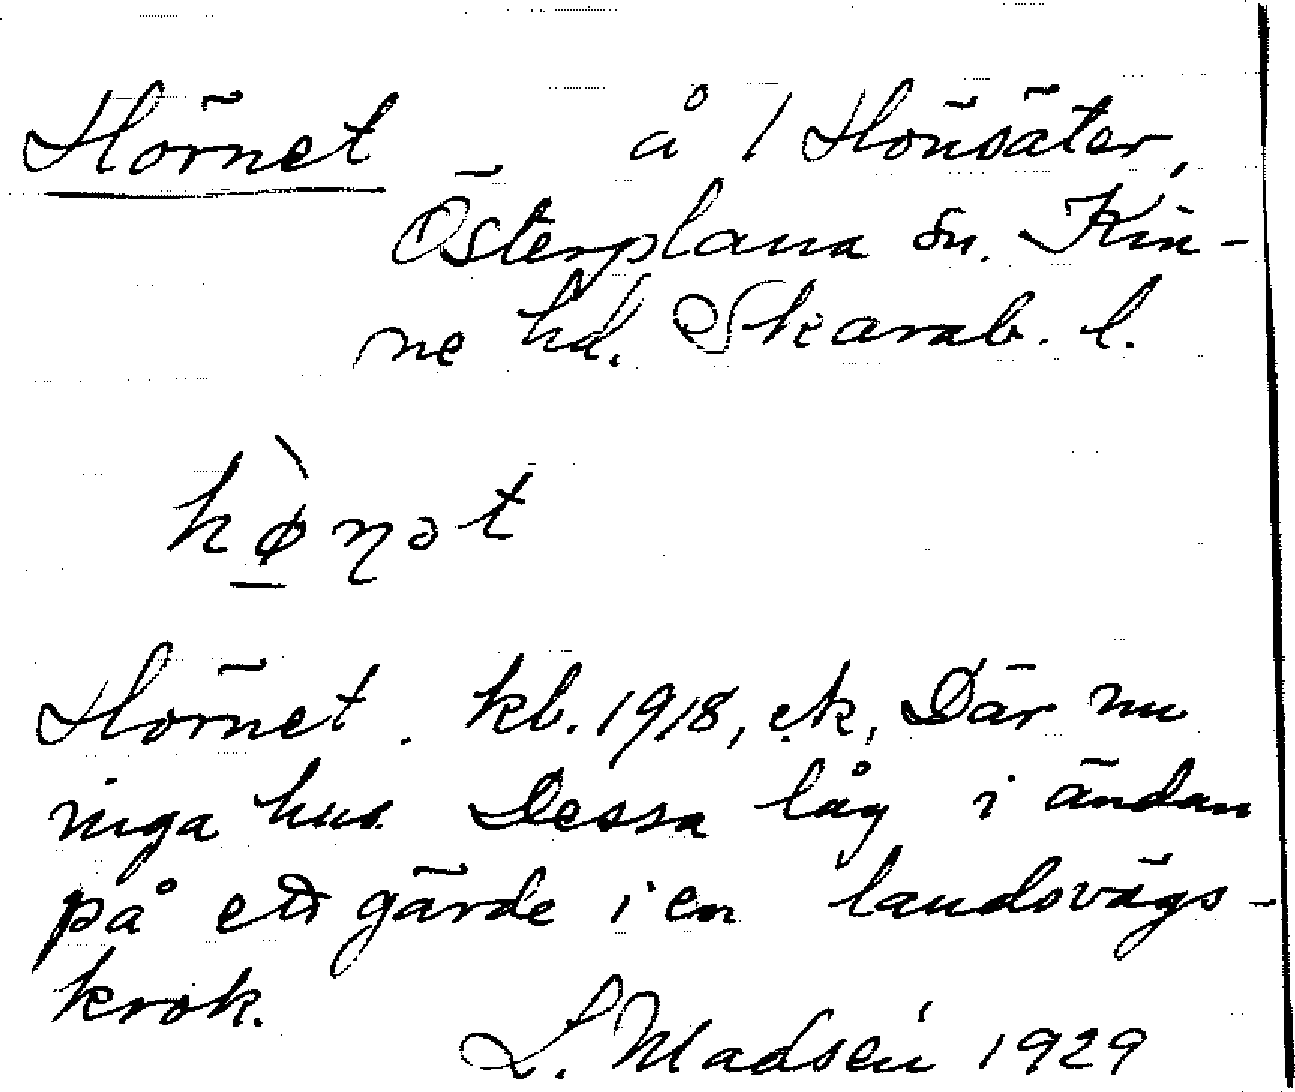 Hörnet å 1 Hönsäter,
Österplana sn. Kin-
ne hd. Skarab. l.
hø̀ṇət
Hörnet. kb. 1918, e.k. Där nu
inga hus. Dessa låg i ändan
på ett gärde i en landsvägs-
krok.
L. Madsén 1929